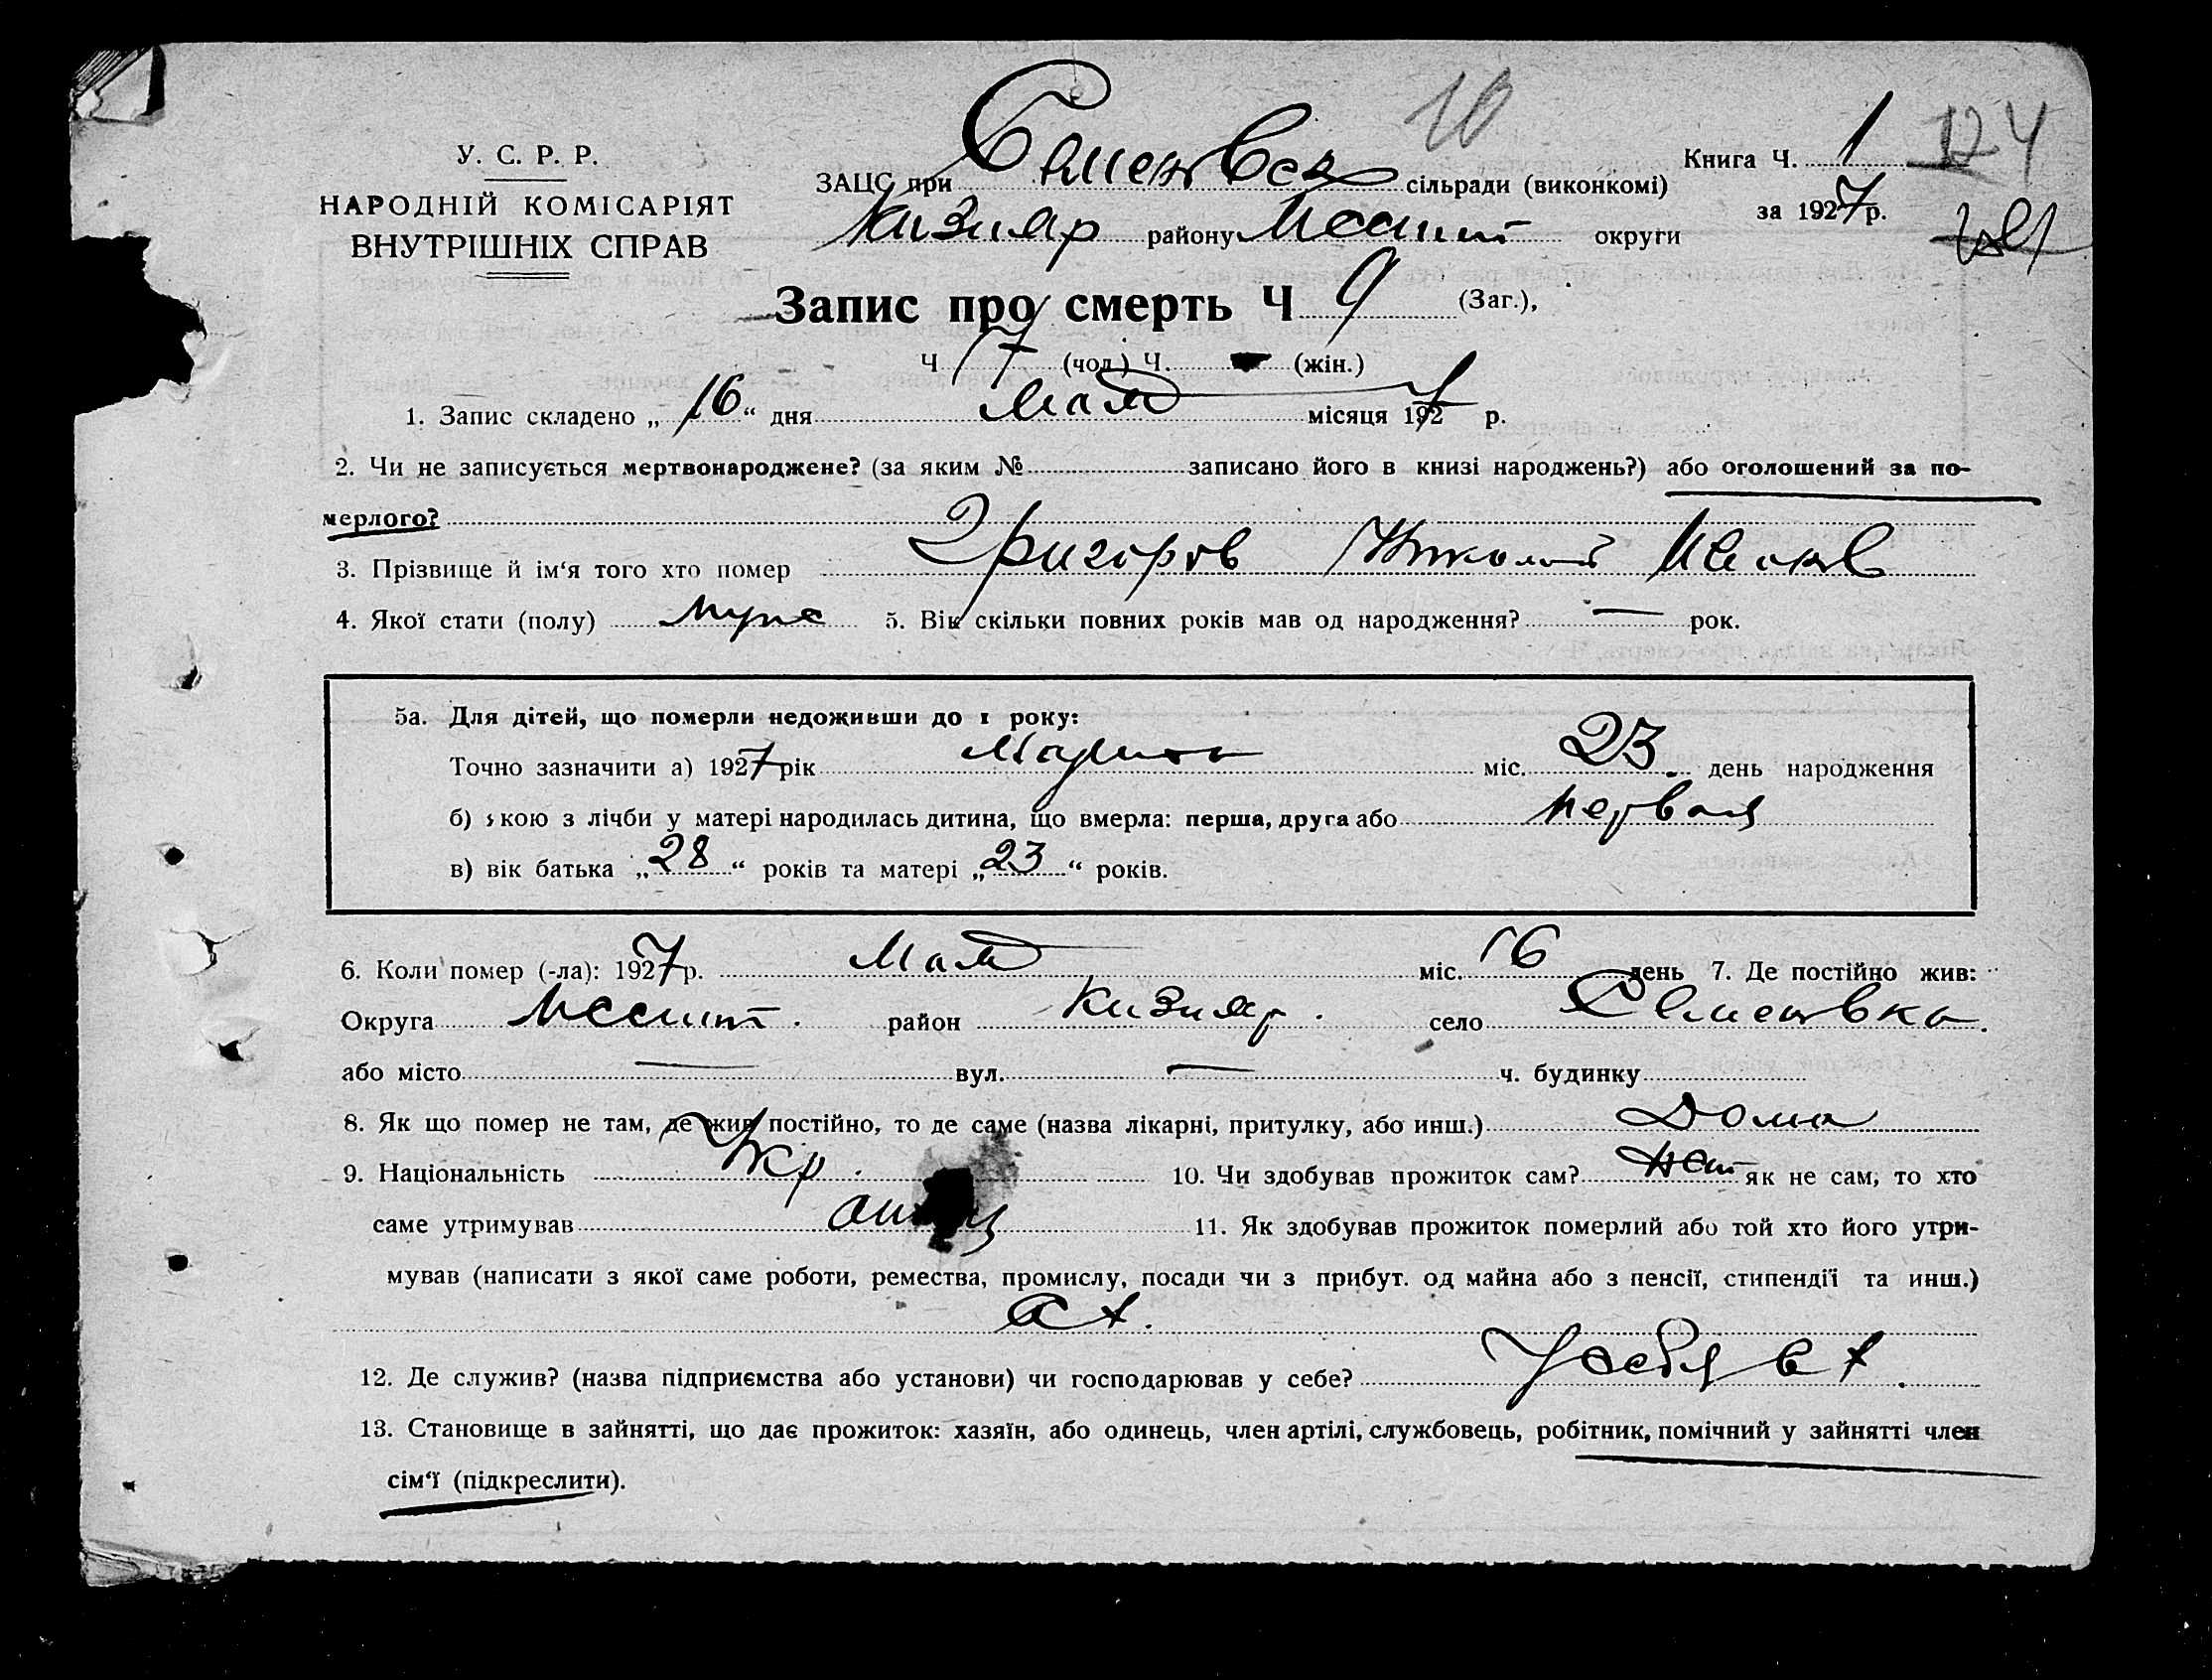 10
Книга Ч. 1 124
У. С. Р. Р.
НАРОДНІЙ КОМІСАРІЯТ
ВНУТРІШНІХ СПРАВ
ЗАЦС при Семеновск сільради (виконкомі)
за 1927 р.
Кизияр району Мелит округи
Запис про смерть Ч 9 (Заг.),
Ч 7 (чол.) Ч. (жін.)
1. Запис складено „16“ дня Мая місяця 1927 р.
2. Чи не записується мертвонароджене? (за яким № записано його в книзі народжень?) або оголошений за по-
мерлого?
3. Прізвище й ім‘я того хто помер Григоров Николай Иванов
4. Якої стати (полу) Муж 5. Вік скільки повних років мав од народження? — рок.
5а. Для дітей, що померли недоживши до 1 року:
Точно зазначити а) 1927 рік Марта міс. 23 день народження
б) якою з лічби у матері народилась дитина, що вмерла: перша, друга або первая
в) вік батька „28“ років та матері „23“ років.
6. Коли помер (-ла): 1927 р. Мая міс. 16 день 7. Де постійно жив:
Округа Мелит. район Кизияр. село Семеновка.
або місто — вул. — ч. будинку
8. Як що помер не там, де жив постійно, то де саме (назва лікарні, притулку, або инш.) Дома
9. Національність Укр. 10. Чи здобував прожиток сам? Нет як не сам, то хто
саме утримував 11. Як здобував прожиток померлий або той хто його утри-
мував (написати з якої саме роботи, ремества, промислу, посади чи з прибут. од майна або з пенсії, стипендії та инш.)
с х.
12. Де служив? (назва підприємства або установи) чи господарював у себе? У себя в х.
13. Становище в зайнятті, що дає прожиток: хазяїн, або одинець, член артілі, службовець, робітник, помічний у зайнятті член
сім‘ї (підкреслити).